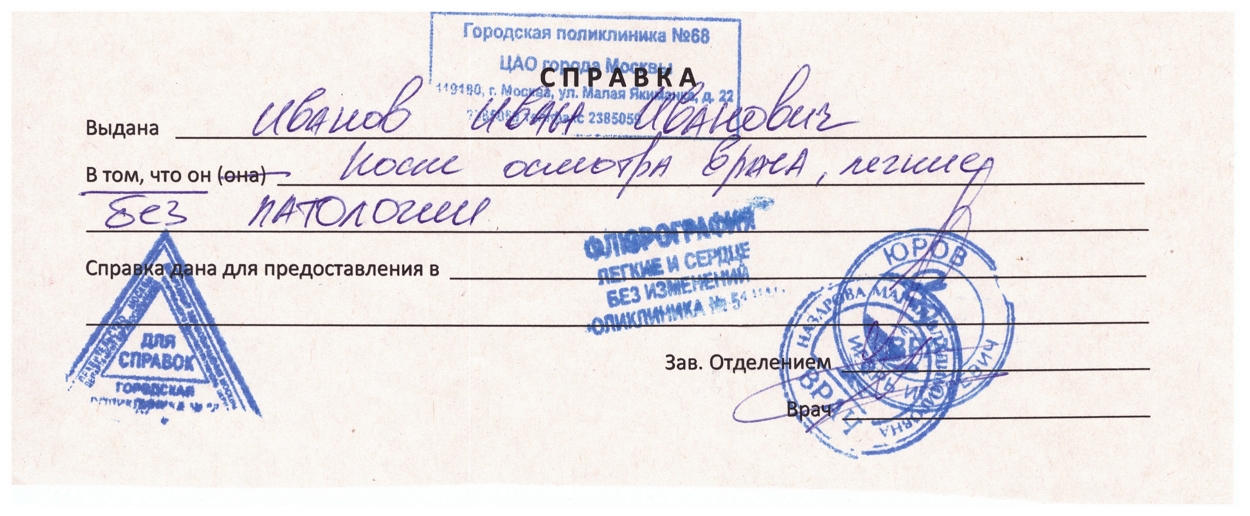 Городская поликлиника №68
ЦАО города Москвы
СПРАВКА
119180, г. Москва, ул. Малая Якиманка, д. 22
2385059
Выдана Иванов Иван Иванович
В том, что он (она) После осмотра врача, легкие
без патологии
ФЛЮРОГРАФИЯ
ЛЕГКИЕ И СЕРДЦЕ
БЕЗ ИЗМЕНЕНИЙ
ОЛИКЛИНИКА №
Справка дана для предоставления в
ДЛЯ
СПРАВОК
ГОРОДСКАЯ
ЮРОВ
НАЗАРОВА
ВРАЧ
Зав. Отделением
Врач